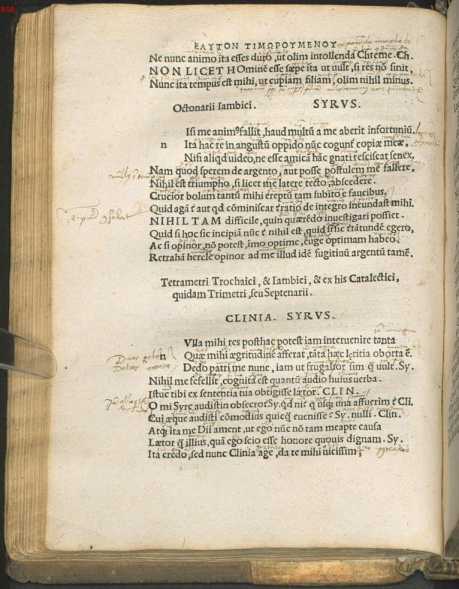 ΕΑΥΤΟΝ ΤΙΜΟΡΟΥΜΕΝΟΥ
Ne nunc animo ita esses duro, ut olim intollenda Chreme. Ch.
NON LICET HOminē esse sæpe ita ut uult, si res nō sinit,
Nunc ita tempus est mihi, ut cupiam filiam, olim nihil minus.
Octonarii Iambici. SYRVS.
Isi me animꝰ fallit, haud multū a me aberit infortuniū.
n Ita hac re in angustū oppido nūc cogunť copiæ meæ,
Nisi aliqd uideo, ne esse amicā hāc gnati resciscat senex,
Nam quod sperem de argento, aut posse postulem me fallere,
Nihil est triumpho, si licet me latere tecto abscedere.
Crucior bolum tantū mihi ereptū tam subito e faucibus,
Quid agā ? aut qd cōminiscar ? ratio de integro ineundast mihi.
NIHIL TAM difficile, quin quærēdo inuestigari possiet.
Quid si hoc sic incipiā nūc ? nihil est, quid si sic ? tātundē egero,
Ac si opinor, nō potest, imo optime, euge optimam habeo.
Retrahā hercle opinor ad me illud idē fugitiuū argentū tamē.
Tetrametri Trochaici, & Iambici, & ex his Catalectici,
quidam Trimetri, seu Septenarii.
CLINIA. SYRVS.
Vlla mihi res posthac potest iam interuenire tanta
n Quæ mihi ægritudinē afferat, tāta hæc lętitia oborta ē.
Dedo patri me nunc, iam ut frugalior sim q̄ uult. Sy.
Nihil me fefellit, cognita est quantū audio huius uerba.
Istuc tibi ex sententia tua obtigisse lætor. CLIN.
O mi Syre audistin obsecro? Sy. qd ni? q usq; una affuerim? Cli.
Cui æque audisti cōmodius quicq̄ euenisse? Sy. nulli. Clin.
Atq; ita me Dii ament, ut ego nūc nō tam meapte causa
Lætor q̄ illius, quā ego scio esse honore quouis dignam. Sy.
Ita crēdo, sed nunc Clinia age, da te mihi uicissim: